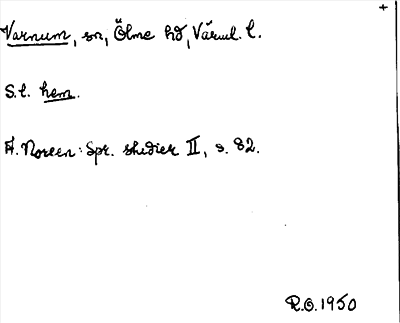 +
Varnum, sn, Ölme hd, Värml. l.
S.t. hem.
A. Noreen: Spr. studier II, s. 82.
R.O. 1950